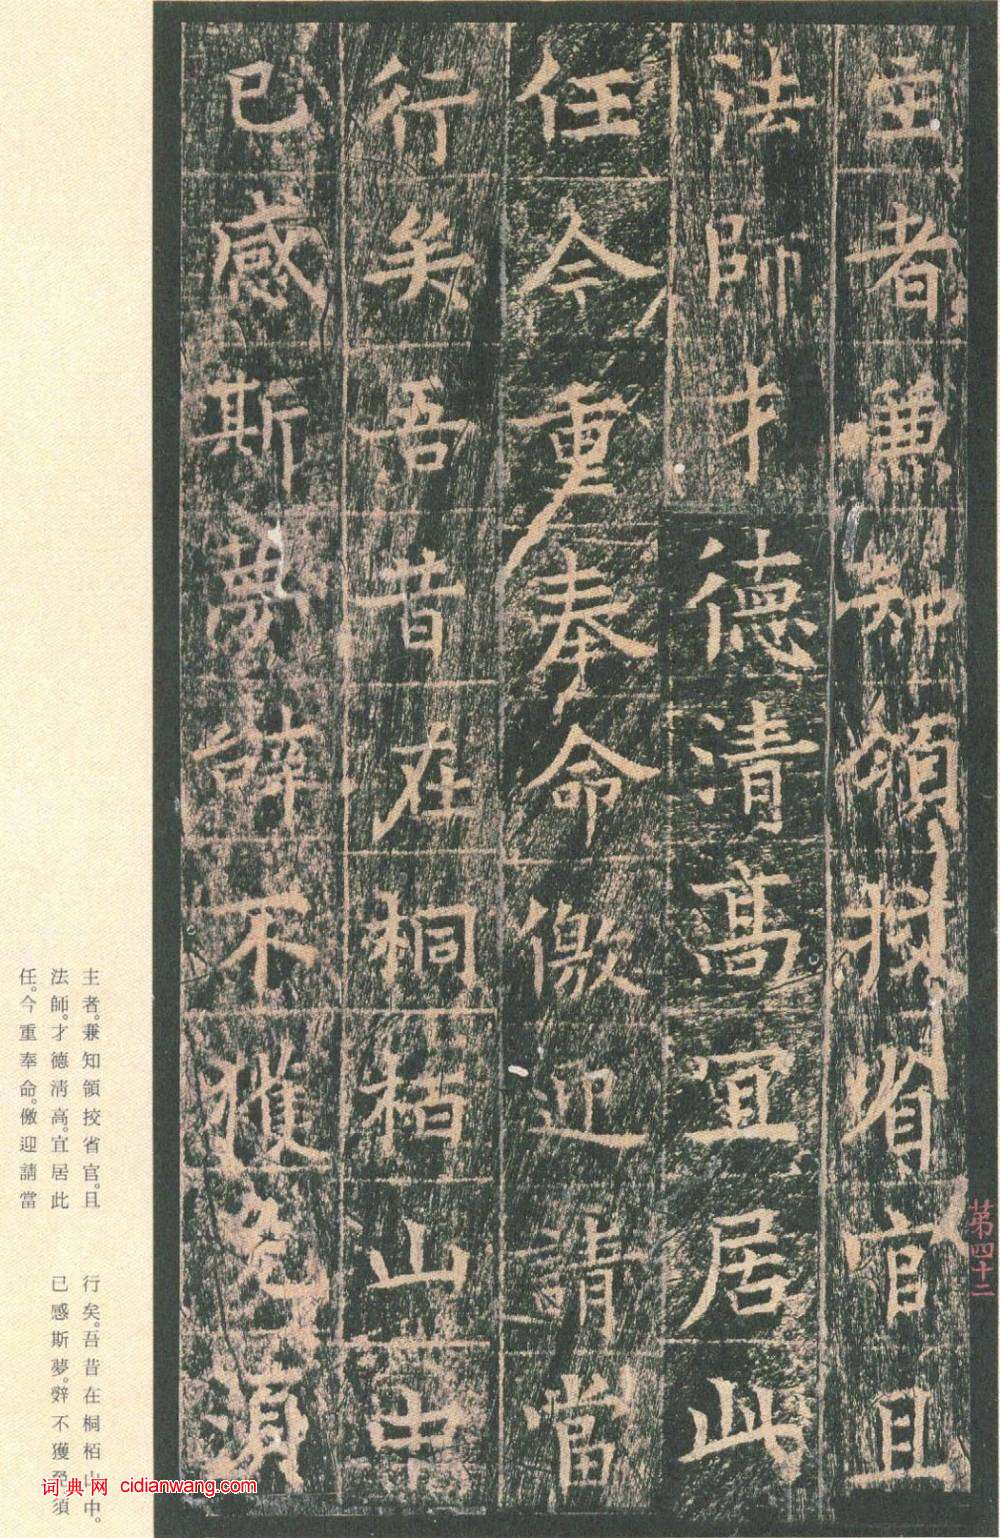 主者兼知領挍省官且
法師才德清高宜居此
任今重奉命儌迎請當
行矣吾昔在桐栢山中
已感斯夢辤不獲免須
第四十二
主者。兼知領挍省官。且
法師。才德清高。宜居此
任。今重奉命。儌迎請當
行矣。吾昔在桐栢山中。
已感斯夢。辤不獲免須
词典网 cidianwang.com